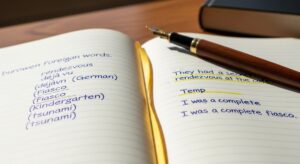 borrowen Foreigan words.
rendezvous
déjà vu
(dejavn (German)
(Fiasco
(Fiasco)
(Kindergarten)
(tsunami)
(tsunami)
They had a se
rendezvous at the
Temp
I was a complete
I was a complete fiasco.